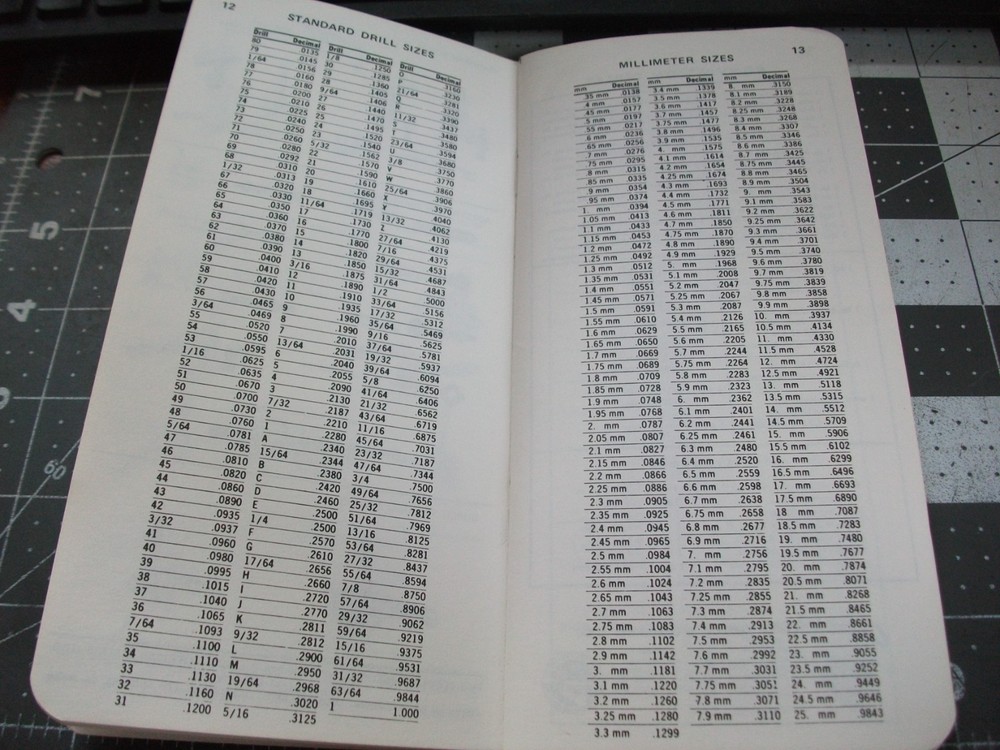 12
STANDARD DRILL SIZES
Drill Decimal
80 .0135
79 .0145
1/64 .0156
78 .0160
77 .0180
76 .0200
75 .0210
74 .0225
73 .0240
72 .0250
71 .0260
70 .0280
69 .0292
68 .0310
1/32 .0313
67 .0320
66 .0330
65 .0350
64 .0360
63 .0370
62 .0380
61 .0390
60 .0400
59 .0410
58 .0420
57 .0430
56 .0465
3/64 .0469
55 .0520
54 .0550
53 .0595
1/16 .0625
52 .0635
51 .0670
50 .0700
49 .0730
48 .0760
5/64 .0781
47 .0785
46 .0810
45 .0820
44 .0860
43 .0890
42 .0935
3/32 .0937
41 .0960
40 .0980
39 .0995
38 .1015
37 .1040
36 .1065
7/64 .1093
35 .1100
34 .1110
33 .1130
32 .1160
31 .1200
Drill Decimal
1/8 .1250
30 .1285
29 .1360
28 .1405
9/64 .1406
27 .1440
26 .1470
25 .1495
24 .1520
23 .1540
5/32 .1562
22 .1570
21 .1590
20 .1610
19 .1660
18 .1695
11/64 .1719
17 .1730
16 .1770
15 .1800
14
13 .1850
3/16 .1875
12 .1890
11 .1910
10 .1935
9 .1960
8 .1990
7 .2010
13/64 .2031
6 .2040
5 .2055
4 .2090
3 .2130
7/32 .2187
2 .2210
1 .2280
A .2340
15/64 .2344
B .2380
C .2420
D .2460
E .2500
1/4 .2500
F .2570
G .2610
17/64 .2656
H .2660
I .2720
J .2770
K .2811
9/32 .2812
L .2900
M .2950
19/64 .2968
N .3020
5/16 .3125
Drill Decimal
O .3160
P .3230
21/64 .3281
Q .3320
R .3390
11/32 .3437
S .3480
T .3580
23/64 .3594
U .3680
3/8 .3750
V .3770
W .3860
25/64 .3906
X .3970
Y .4040
13/32 .4062
Z .4130
27/64 .4219
7/16 .4375
29/64 .4531
15/32 .4687
31/64 .4843
1/2 .5000
33/64 .5156
17/32 .5312
35/64 .5469
9/16 .5625
37/64 .5781
19/32 .5937
39/64 .6094
5/8 .6250
41/64 .6406
21/32 .6562
43/64 .6719
11/16 .6875
45/64 .7031
23/32 .7187
47/64 .7344
3/4 .7500
49/64 .7656
25/32 .7812
51/64 .7969
13/16 .8125
53/64 .8281
27/32 .8437
55/64 .8594
7/8 .8750
57/64 .8906
29/32 .9062
59/64 .9219
15/16 .9375
61/64 .9531
31/32 .9687
63/64 .9844
1 1.000
13
MILLIMETER SIZES
mm Decimal
.35 mm .0138
.4 mm .0157
.45 mm .0177
.5 mm .0197
.55 mm .0217
.6 mm .0236
.65 mm .0256
.7 mm .0276
.75 mm .0295
.8 mm .0315
.85 mm .0335
.9 mm .0354
.95 mm .0374
1. mm .0394
1.05 mm .0413
1.1 mm .0433
1.15 mm .0453
1.2 mm .0472
1.25 mm .0492
1.3 mm .0512
1.35 mm .0531
1.4 mm .0551
1.45 mm .0571
1.5 mm .0591
1.55 mm .0610
1.6 mm .0629
1.65 mm .0650
1.7 mm .0669
1.75 mm .0689
1.8 mm .0709
1.85 mm .0728
1.9 mm .0748
1.95 mm .0768
2. mm .0787
2.05 mm .0807
2.1 mm .0827
2.15 mm .0846
2.2 mm .0866
2.25 mm .0886
2.3 mm .0905
2.35 mm .0925
2.4 mm .0945
2.45 mm .0965
2.5 mm .0984
2.55 mm .1004
2.6 mm .1024
2.65 mm .1043
2.7 mm .1063
2.75 mm .1083
2.8 mm .1102
2.9 mm .1142
3. mm .1181
3.1 mm .1220
3.2 mm .1260
3.25 mm .1280
3.3 mm .1299
mm Decimal
3.4 mm .1339
3.5 mm .1378
3.6 mm .1417
3.7 mm .1457
3.75 mm .1477
3.8 mm .1496
3.9 mm .1535
4. mm .1575
4.1 mm .1614
4.2 mm .1654
4.25 mm .1674
4.3 mm .1693
4.4 mm .1732
4.5 mm .1771
4.6 mm .1811
4.7 mm .1850
4.75 mm .1870
4.8 mm .1890
4.9 mm .1929
5. mm .1968
5.1 mm .2008
5.2 mm .2047
5.25 mm .2067
5.3 mm .2087
5.4 mm .2126
5.5 mm .2165
5.6 mm .2205
5.7 mm .2244
5.75 mm .2264
5.8 mm .2283
5.9 mm .2323
6. mm .2362
6.1 mm .2401
6.2 mm .2441
6.25 mm .2461
6.3 mm .2480
6.4 mm .2520
6.5 mm .2559
6.6 mm .2598
6.7 mm .2638
6.75 mm .2658
6.8 mm .2677
6.9 mm .2716
7. mm .2756
7.1 mm .2795
7.2 mm .2835
7.25 mm .2855
7.3 mm .2874
7.4 mm .2913
7.5 mm .2953
7.6 mm .2992
7.7 mm .3031
7.75 mm .3051
7.8 mm .3071
7.9 mm .3110
mm Decimal
8. mm .3150
8.1 mm .3189
8.2 mm .3228
8.25 mm .3248
8.3 mm .3268
8.4 mm .3307
8.5 mm .3346
8.6 mm .3386
8.7 mm .3425
8.75 mm .3445
8.8 mm .3465
8.9 mm .3504
9. mm .3543
9.1 mm .3583
9.2 mm .3622
9.25 mm .3642
9.3 mm .3661
9.4 mm .3701
9.5 mm .3740
9.6 mm .3780
9.7 mm .3819
9.75 mm .3839
9.8 mm .3858
9.9 mm .3898
10. mm .3937
10.5 mm .4134
11. mm .4330
11.5 mm .4528
12. mm .4724
12.5 mm .4921
13. mm .5118
13.5 mm .5315
14. mm .5512
14.5 mm .5709
15. mm .5906
15.5 mm .6102
16. mm .6299
16.5 mm .6496
17. mm .6693
17.5 mm .6890
18 mm .7087
18.5 mm .7283
19. mm .7480
19.5 mm .7677
20. mm .7874
20.5 mm .8071
21. mm .8268
21.5 mm .8465
22. mm .8661
22.5 mm .8858
23. mm .9055
23.5 mm .9252
24. mm .9449
24.5 mm .9646
25. mm .9843
7
5
4
60